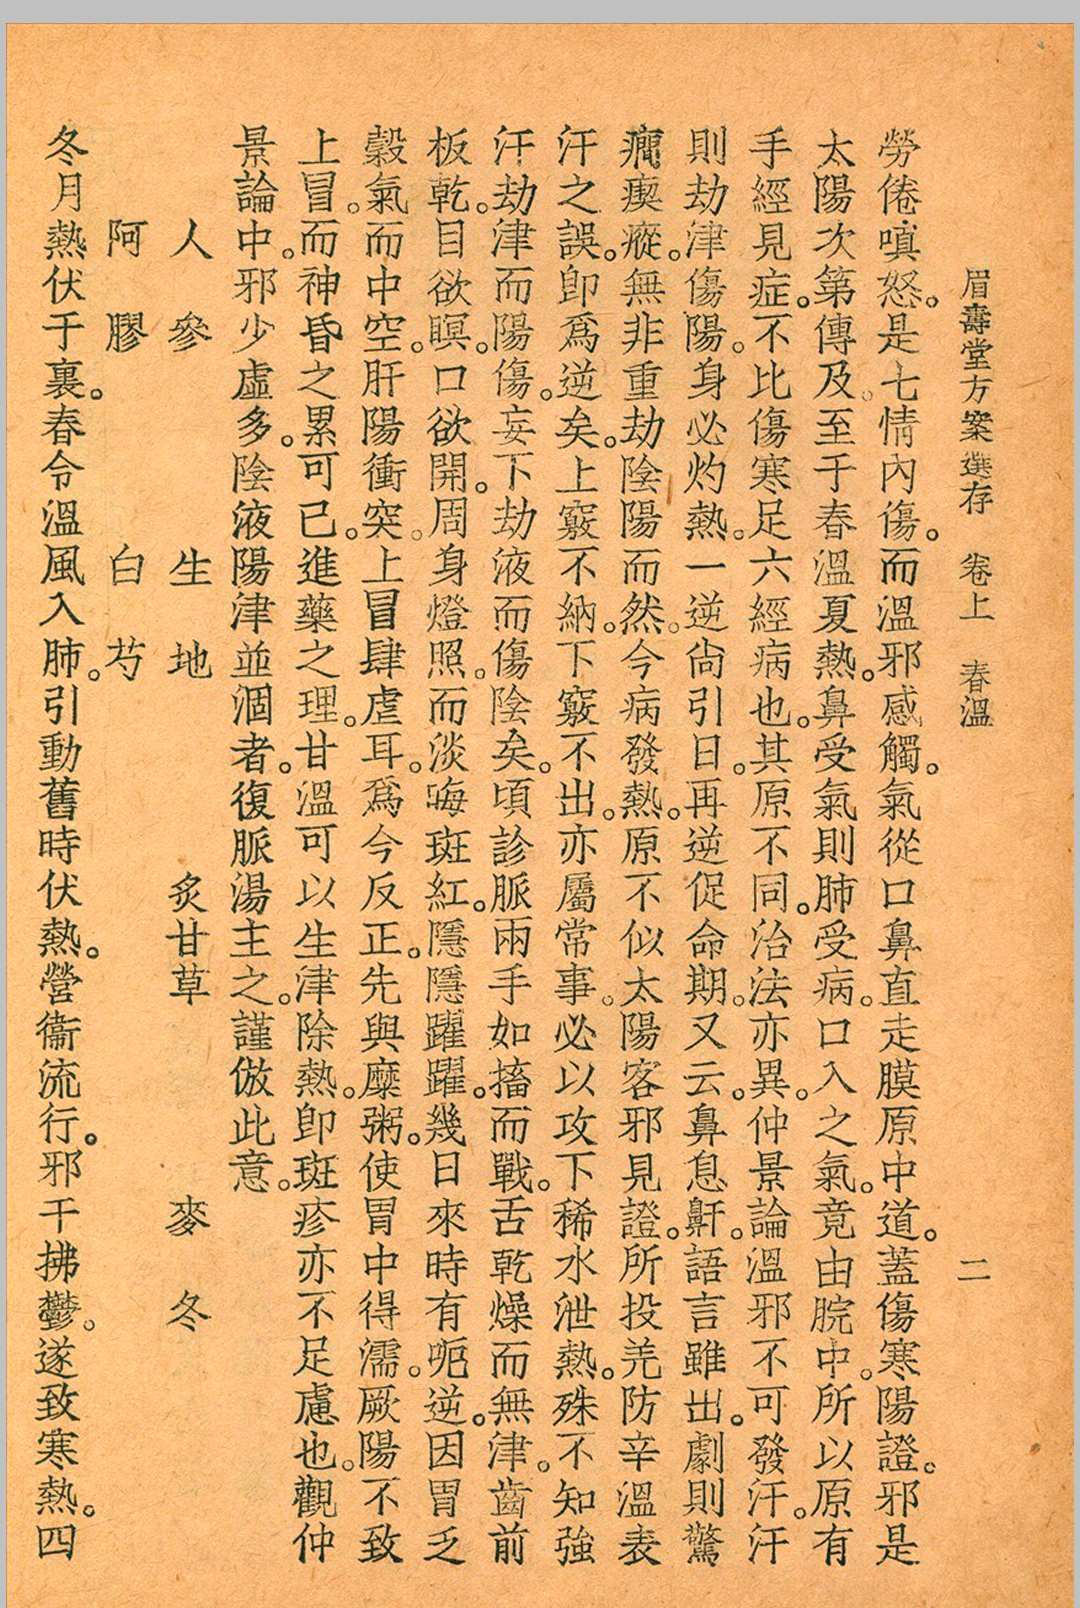 眉壽堂方案選存 卷上 春溫 二
勞倦嗔怒。是七情內傷。而溫邪感觸。氣從口鼻直走膜原中道。蓋傷寒陽證。邪是
太陽次第傳及。至于春溫夏熱。鼻受氣則肺受病。口入之氣。竟由脘中。所以原有
手經見症。不比傷寒足六經病也。其原不同。治法亦異。仲景論溫邪不可發汗。汗
則劫津傷陽。身必灼熱。一逆尙引日。再逆促命期。又云。鼻息鼾。語言雖出。劇則驚
癎。瘈瘲。無非重劫陰陽而然。今病發熱。原不似太陽客邪見證。所投羌防辛溫表
汗之誤。卽爲逆矣。上竅不納。下竅不出。亦屬常事。必以攻下稀水泄熱。殊不知強
汗劫津而陽傷。妄下劫液而傷陰矣。頃診脈兩手如搐而戰。舌乾燥而無津。齒前
板乾。目欲瞑。口欲開。周身燈照。而淡晦斑紅。隱隱躍躍。幾日來時有呃逆。因胃乏
穀氣而中空。肝陽衝突。上冒肆虐耳。爲今反正。先與糜粥。使胃中得濡。厥陽不致
上冒。而神昏之累可已。進藥之理。甘溫可以生津除熱。卽斑疹亦不足慮也。觀仲
景論中。邪少虛多。陰液陽津並涸者。復脈湯主之。謹倣此意。
人參 生地 炙甘草 麥冬
阿膠 白芍
冬月熱伏于裏。春令溫風入肺。引動舊時伏熱。營衞流行。邪干拂鬱。遂致寒熱。四